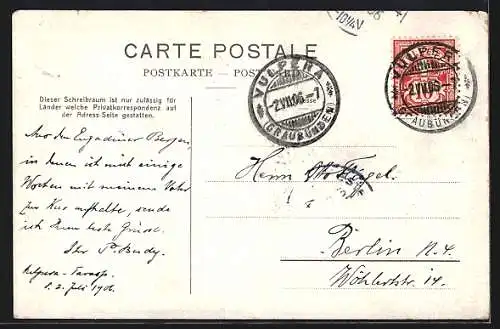 CARTE POSTALE
POSTKARTE – POSTCARD
Dieser Schreibraum ist nur zulässig für
Länder welche Privatkorrespondenz auf
der Adress-Seite gestatten.
Aus den Engadiner Bergen,
in denen ich mich einige
Wochen mit meinem Vater
zur Kur aufhalte, sende
ich Ihnen beste Grüsse.
Ihr P.
Vulpera-Tarasp.
d. 2. Juli 1906.
VULPERA
2.VII.06.-7
(GRAUBÜNDEN)
VULPERA
2.VII.06
(GRAUBÜNDEN)
10¼V
Herrn Otto
Berlin N. 4.
Wöhlertstr. 14.